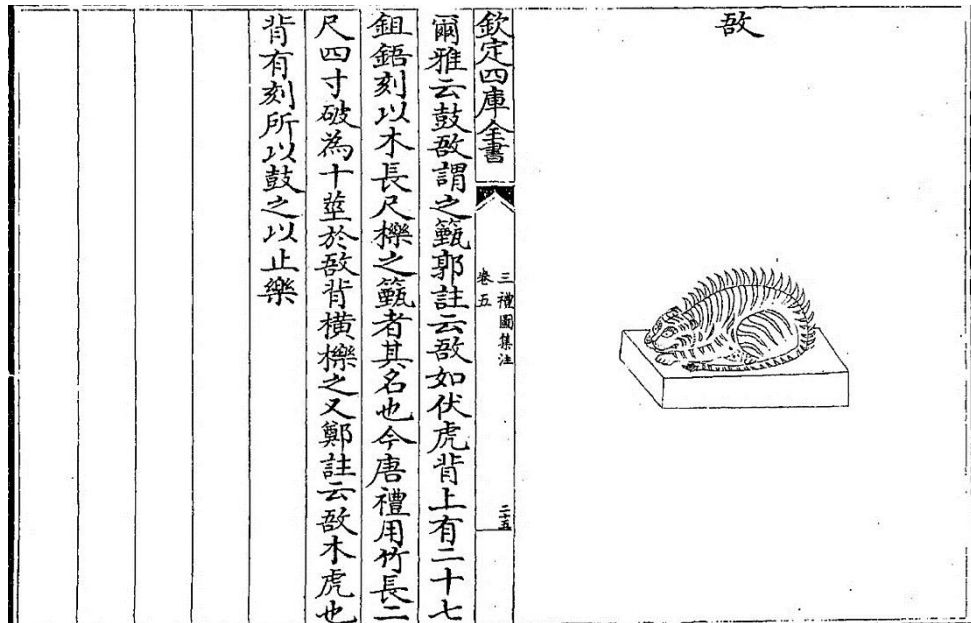 敔
欽定四庫全書
三禮圖集注
卷五
二十五
爾雅云鼓敔謂之籈郭註云敔如伏虎背上有二十七
鉏鋙刻以木長尺櫟之籈者其名也今唐禮用竹長二
尺四寸破為十莖於敔背橫櫟之又鄭註云敔木虎也
背有刻所以鼓之以止樂